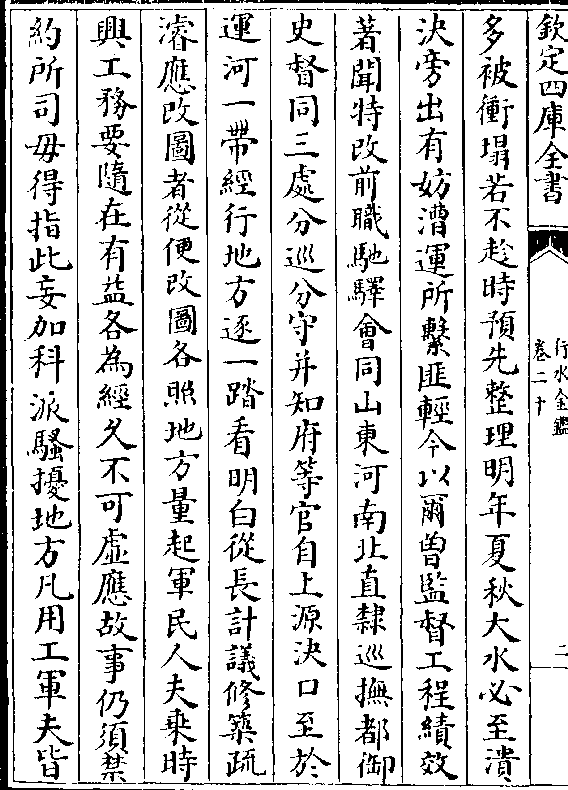 欽定四庫全書
行水金鑑
卷二十
二
多被衝塌若不趁時預先整理明年夏秋大水必至潰
決旁出有妨漕運所繫匪輕今以爾曽監督工程績效
著聞特改前職馳驛會同山東河南北直隸巡撫都御
史督同三處分巡分守并知府等官自上源決口至於
運河一帶經行地方逐一踏看明白從長計議修築疏
濬應改圖者從便改圖各照地方量起軍民人夫乗時
興工務要隨在有益各為經久不可虛應故事仍須禁
約所司毋得指此妄加科派騷擾地方凡用工軍夫皆